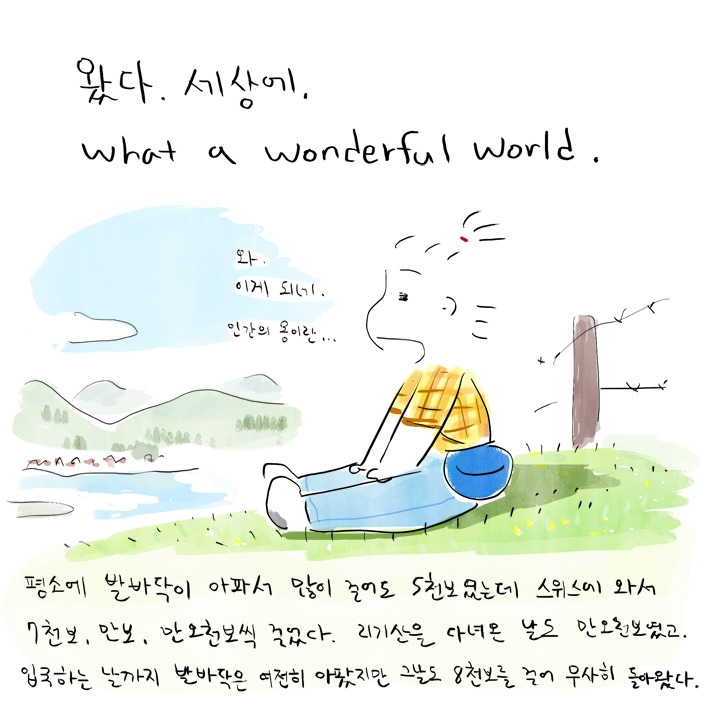 왔다. 세상에.
what a wonderful world.
와.
이게 되네.
인간의 몸이란...
평소에 발바닥이 아파서 많이 걸어도 5천보였는데 스위스에 와서
7천보, 만보, 만오천보씩 걸었다. 리기산을 다녀온 날도 만오천보였고.
입국하는 날까지 발바닥은 여전히 아팠지만 그날도 8천보를 걸어 무사히 돌아왔다.